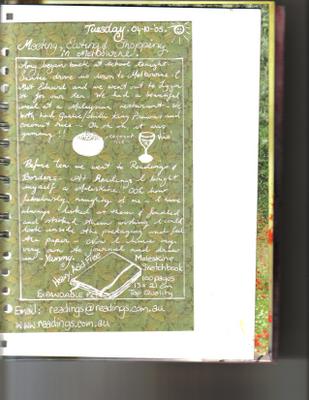 Tuesday. 04-10-05.
Meeting, Eating & Shopping
in Melbourne.
Amy began back at school tonight.
drove us down to Melbourne. I
met Edward and we went out to
for our tea. We had a beautiful
meal at a Malaysian restaurant - we
both had Garlic Chilli King Prawns and
coconut rice - Oh oh oh, it was
yummy!!
coconut
rice
Before Tea we went to Readings &
Borders - At Readings I bought
myself a Moleskine. Ooh how
fabulously naughty of me - I have
always looked at them & fondled
and stroked them wishing I could
look inside the packaging and feel
the paper - Now I have my
very own to and
in - Yummy.
Heavy Acid Free
Moleskine
Sketchbook
100 pages
13 x 21 cm
Top Quality
Expandable
Email: readings@readings.com.au
www.readings.com.au